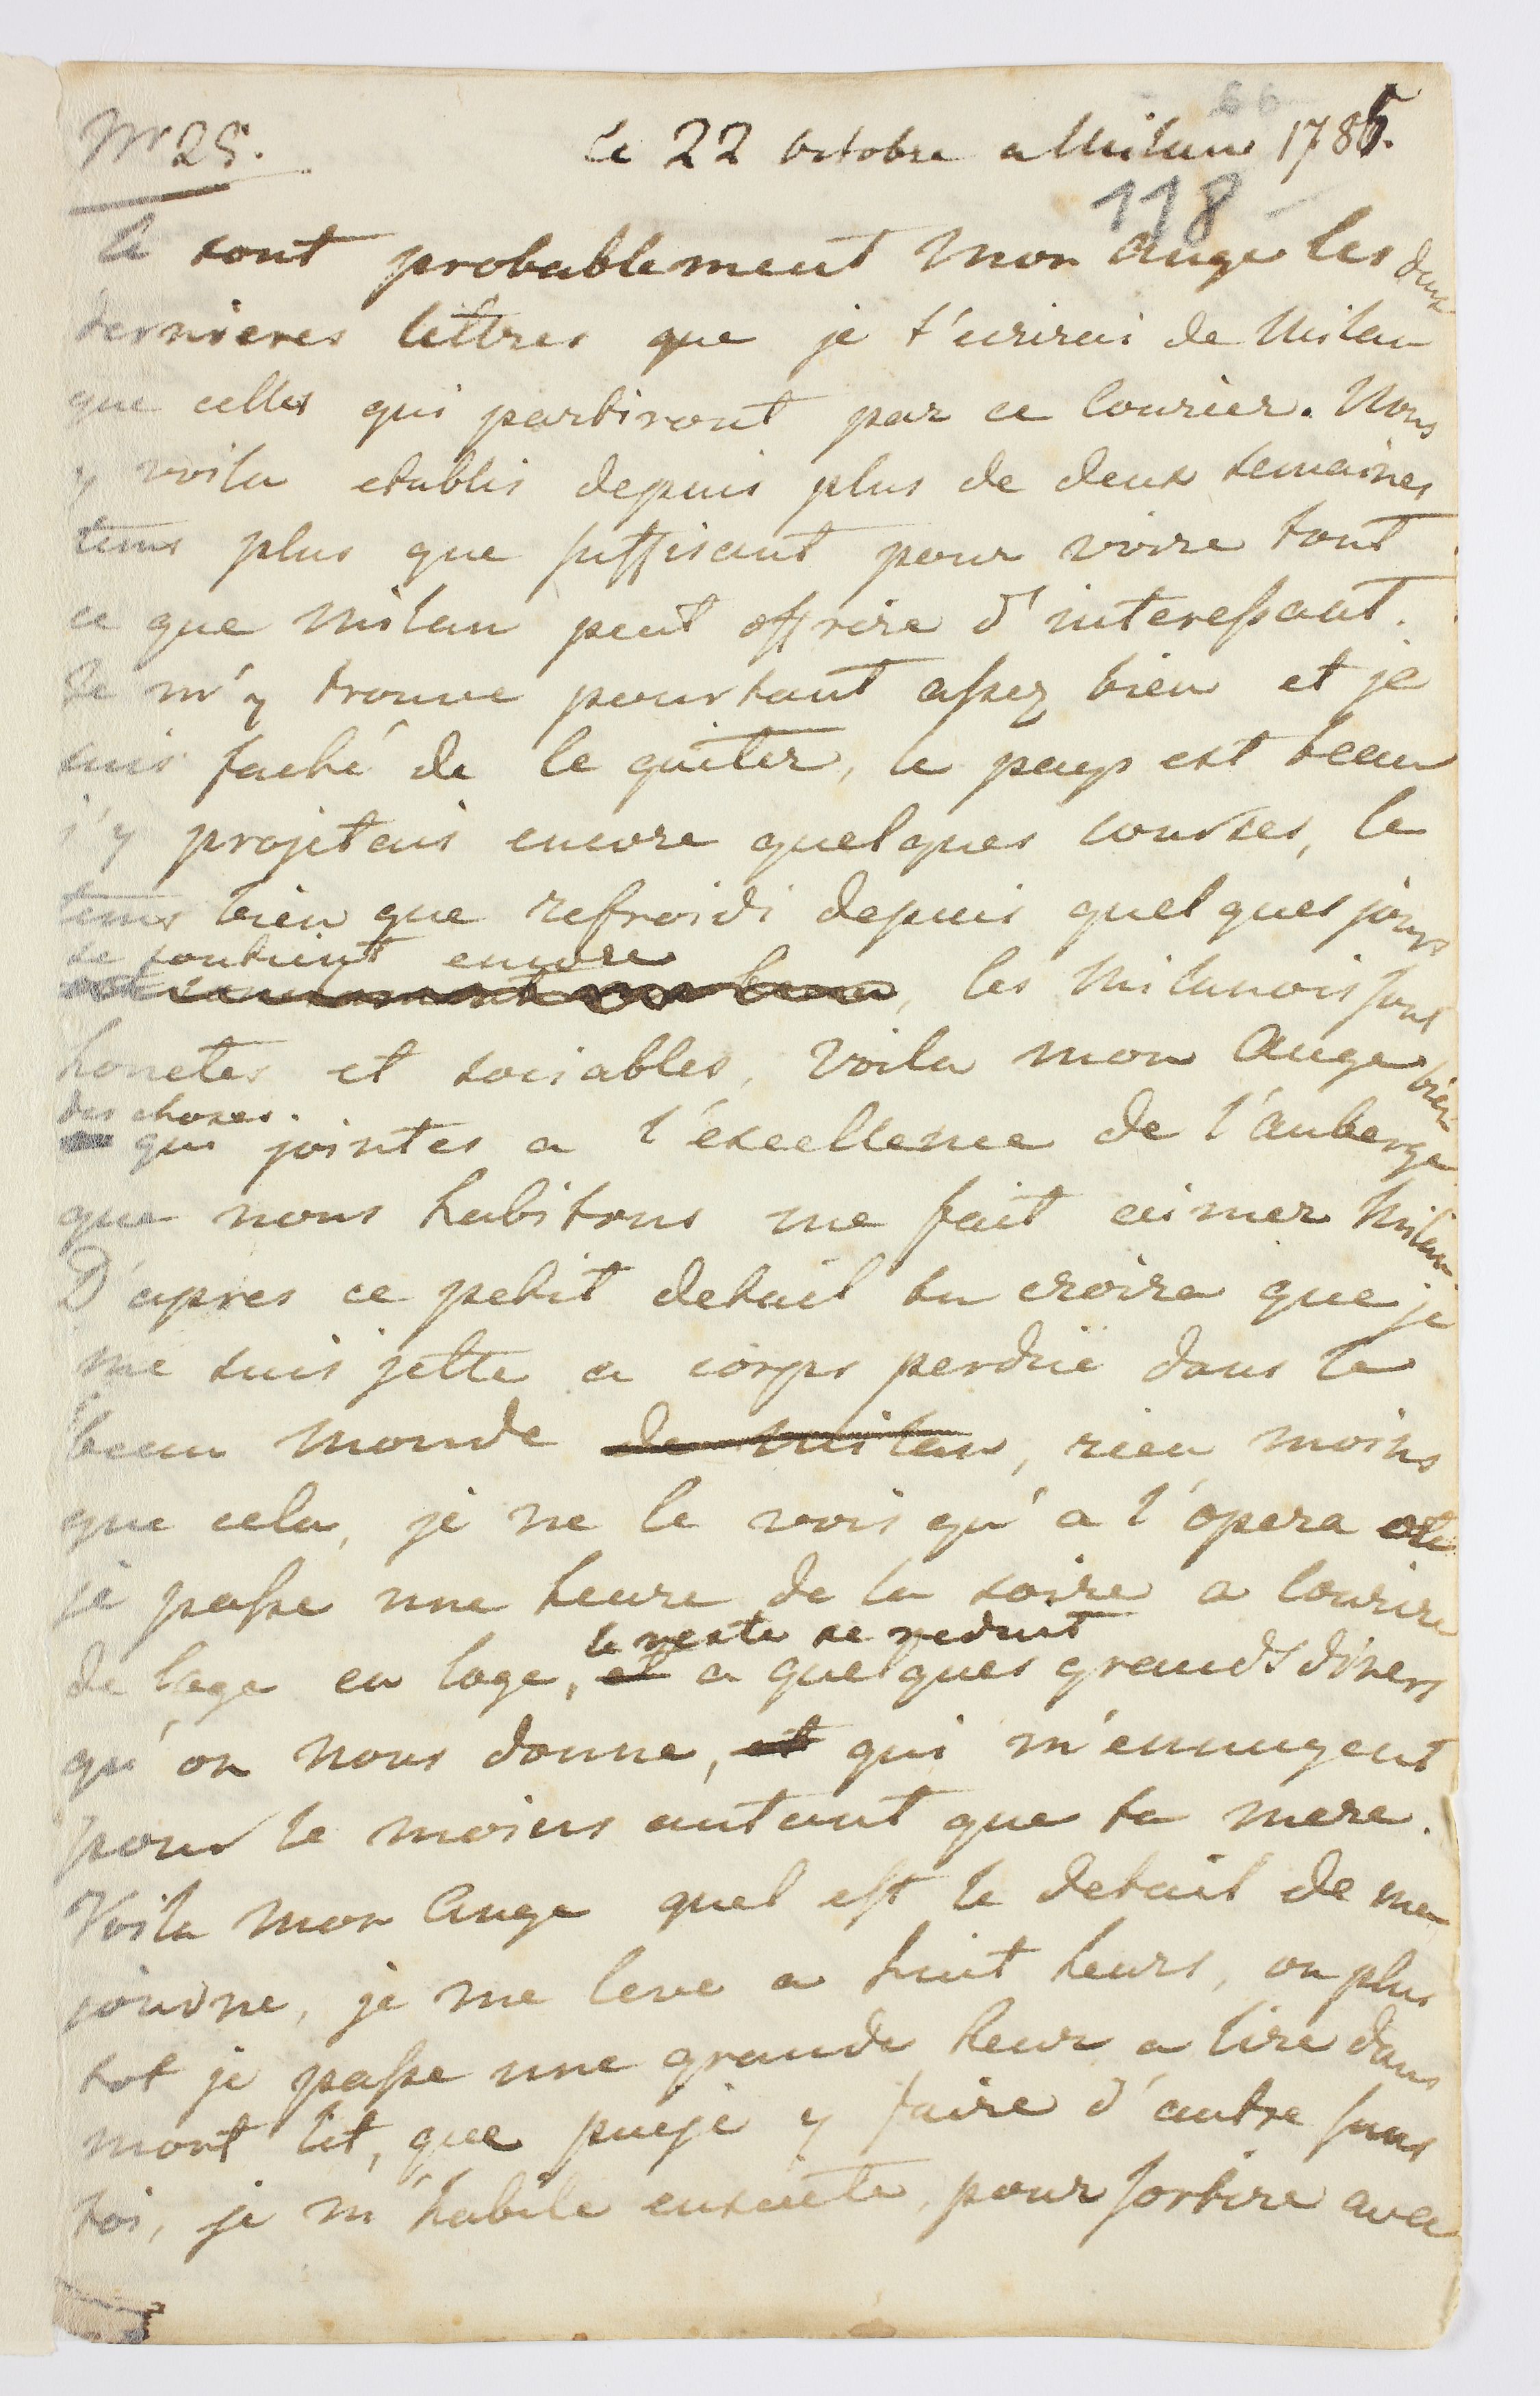 Nr 25.
le 22 octobre a Milan 1785.
118
Ce sont probablement mon ange les deux
dernieres lettres que je t'ecrirai de Milan
que celles qui partiront par ce courier. Nous
y voila etablis depuis plus de deux semaines
tems plus que suffisant pour voire tout
ce que Milan peut offrire d'interessant.
Je m'y trouve pourtant assez bien et je
suis faché de le quiter, le pays est beau
j'y projetais encore quelques courses, le
tems bien que refroidi depuis quelques jours
se soutient encore
, les Milanois sont
honetes et sociables, voila mon ange bien
des choses.
qui jointes a l'excellence de l'auberge
que nous habitons me fait aimer Milan
D'apres ce petit detail tu croira que je
me suis jette a corps perdue dans le
beau monde de milan, rien moins
que cela, je ne le vois qu'a l'opera ou
je passe une heure de la soire a courire
le reste se reduit
de loge en loge, et a quelques grands diners
qu'on nous donne, et qui m'ennuyent
pour le moins autant que ta mere.
Voila mon ange quel est le detail de ma
journe, je me leve a huit heurs, ou plus
tot je passe une grande heur a lire dans
mont lit, que puije y faire d'autre sans
toi, je m'habile ensuite, pour sortire avec